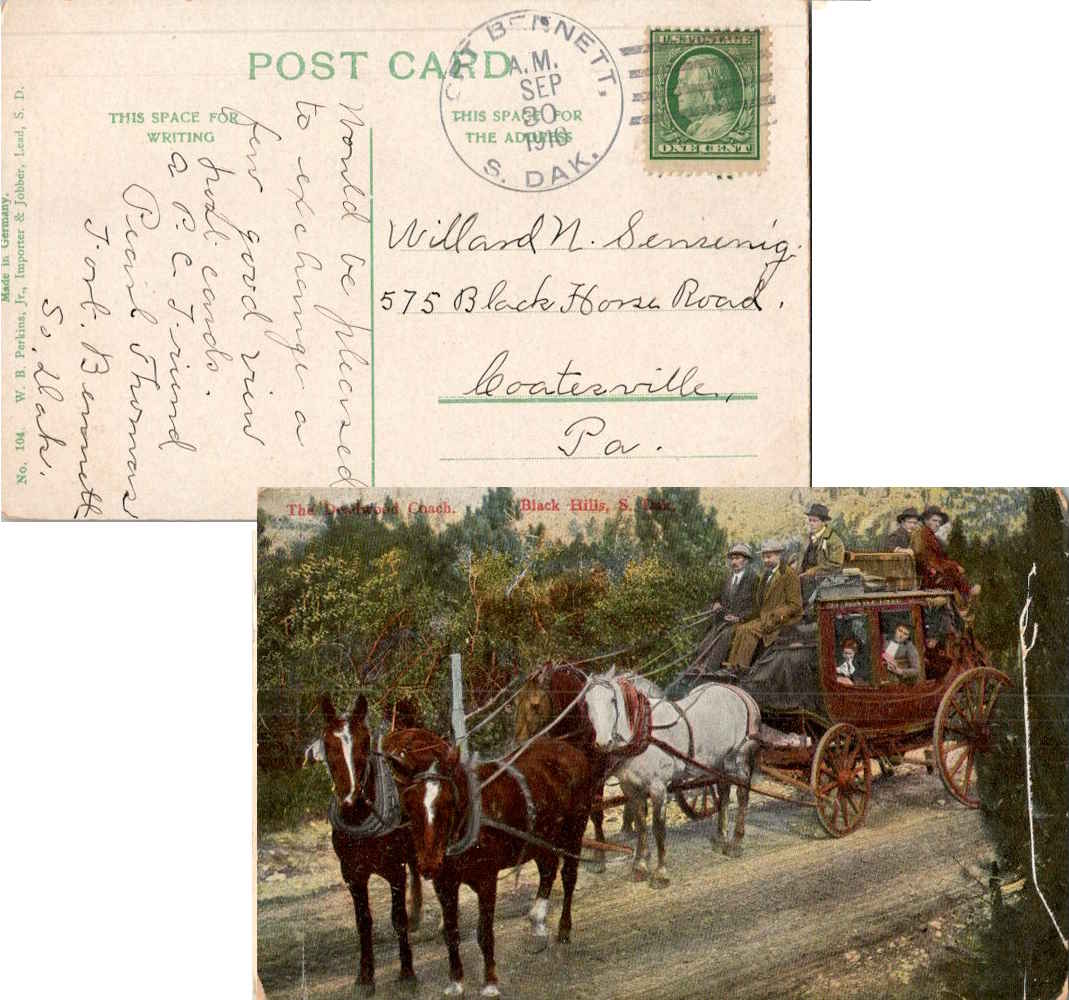 POST CARD
THIS SPACE FOR
WRITING
THIS SPACE FOR
THE ADDRESS
BENNETT,
A.M.
SEP
30
1910
S. DAK.
U.S. POSTAGE
ONE CENT
Would be pleased
to exchange a
few good view
post cards.
a P. C. Friend
Pearl Thomas
Fort. Bennett
So, Dak.
Willard N. Sensenig.
575 Black Horse Road.
Coatesville,
Pa.
Made in Germany.
No. 104. W. B. Perkins, Jr., Importer & Jobber, Lead, S. D.
The Deadwood Coach. Black Hills, S. Dak.